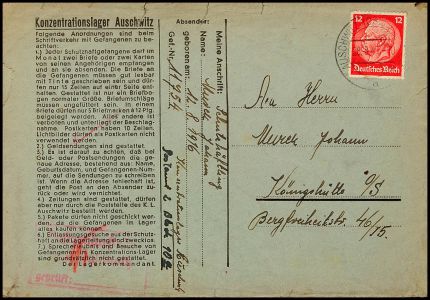 Konzentrationslager Auschwitz
Folgende Anordnungen sind beim
Schriftverkehr mit Gefangenen zu be-
achten:
1.) Jeder Schutzhaftgefangene darf im
Monat zwei Briefe oder zwei Karten
von seinen Angehörigen empfangen
und an sie absenden. Die Briefe an
die Gefangenen müssen gut lesbar
mit Tinte geschrieben sein und dür-
fen nur 15 Zeilen auf einer Seite ent-
halten. Gestattet ist nur ein Briefbo-
gen normaler Größe. Briefumschläge
müssen ungefüttert sein. In einem
Briefe dürfen nur 5 Briefmarken à 12 Pfg.
beigelegt werden. Alles andere ist
verboten und unterliegt der Beschlag-
nahme. Postkarten haben 10 Zeilen.
Lichtbilder dürfen als Postkarten nicht
verwendet werden.
2.) Geldsendungen sind gestattet.
3.) Es ist darauf zu achten, daß bei
Geld- oder Postsendungen die ge-
naue Adresse, bestehend aus: Name,
Geburtsdatum, und Gefangenen-Num-
mer, auf die Sendungen zu schreiben
ist. Wenn die Adresse fehlerhaft ist,
geht die Post an den Absender zu-
rück oder wird vernichtet.
4.) Zeitungen sind gestattet, dürfen
aber nur durch die Poststelle des K. L.
Auschwitz bestellt werden.
5.) Pakete dürfen nicht geschickt wer-
den, da die Gefangenen im Lager
alles kaufen können.
6.) Entlassungsgesuche aus der Schutz-
haft an die Lagerleitung sind zwecklos.
7.) Sprecherlaubnis und Besuche von
Gefangenen im Konzentrationslager sind
grundsätzlich nicht gestattet.
Der Lagerkommandant.
Absender:
Meine Anschrift: Schutzhäftling
Name: Johann
geboren am: 12. 8. 1916
Gef.-Nr.
Block 10
12 12
Deutsches Reich
An Herrn
Murek Johann
Königshütte O/S
46/15.